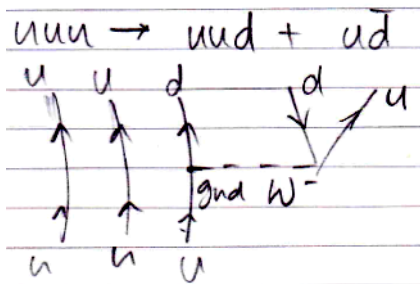 uuu → uud + ud̄
u u d d u
gud W⁻
u u u